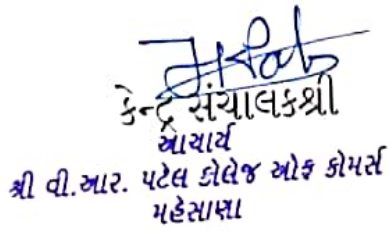 કેન્દ્ર સંચાલકશ્રી
આચાર્ય
શ્રી વી.આર. પટેલ કોલેજ ઓફ કોમર્સ
મહેસાણા